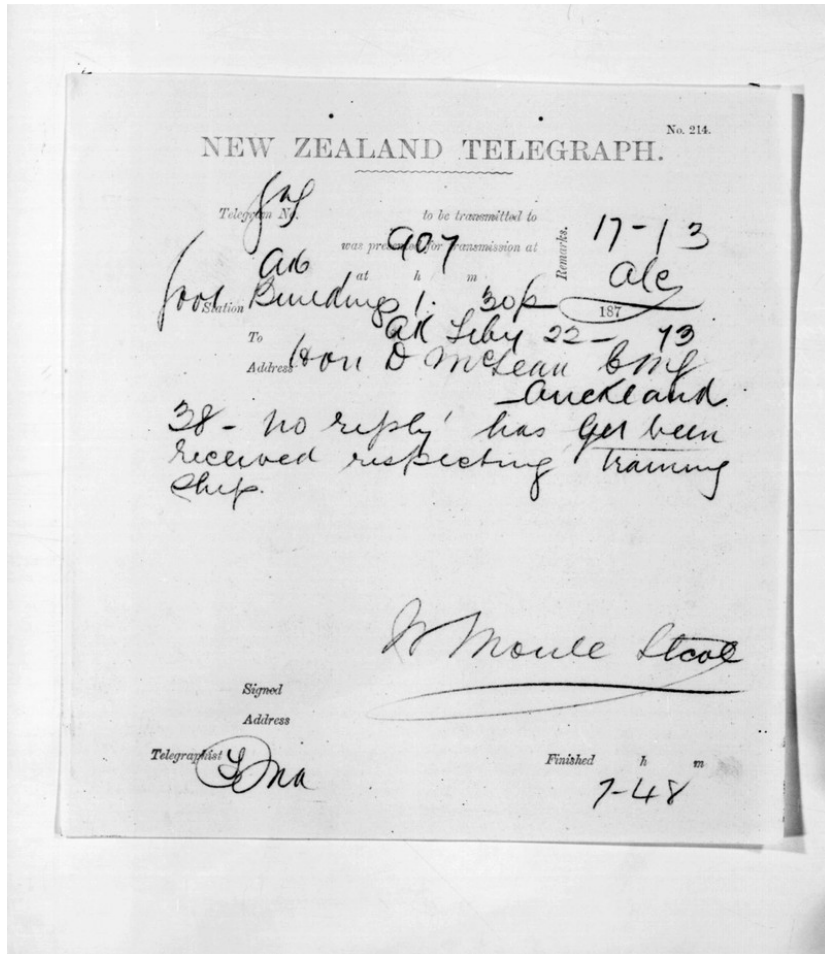 No. 214.
NEW ZEALAND TELEGRAPH.
Telegram No. to be transmitted to
was presented for transmission at
907
Remarks. 17-13
at h m
Station Buildings 1. 30p
187
To
Feby 22- 73
Address Hon D McLean CMG
Auckland
38- No reply has yet been
received respecting Training
Ship.
Moule
Signed
Address
Telegraphist
Finished h m
7-48